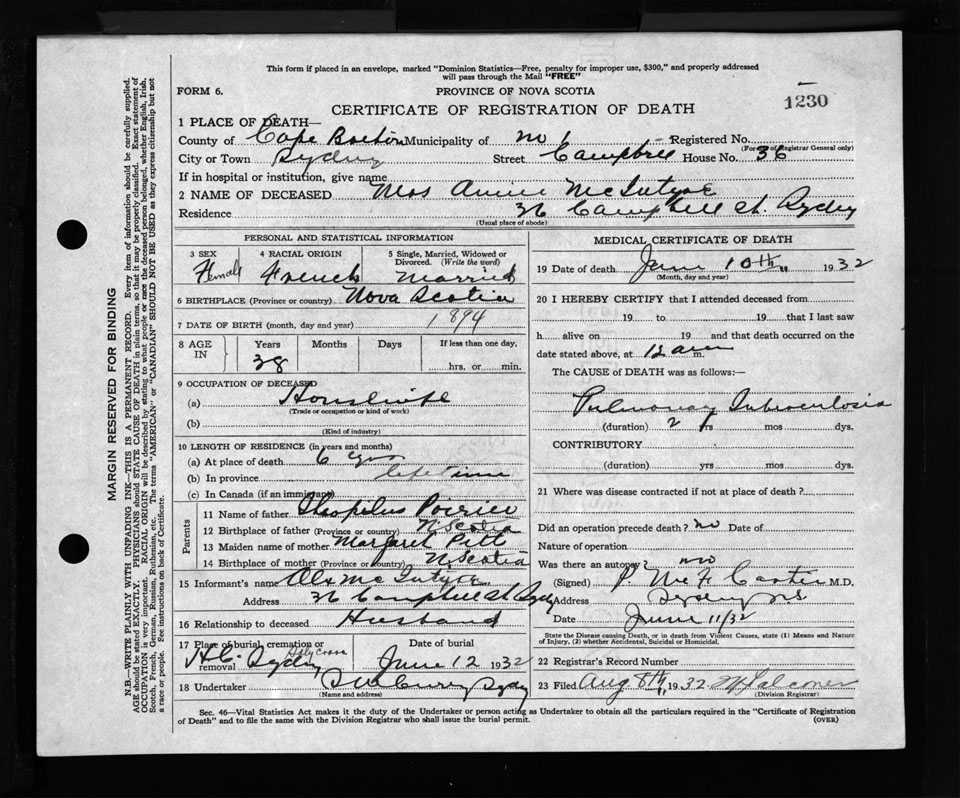 This form if placed in an envelope, marked "Dominion Statistics—Free, penalty for improper use, $300," and properly addressed
will pass through the Mail "FREE"
FORM 6. PROVINCE OF NOVA SCOTIA
1230
CERTIFICATE OF REGISTRATION OF DEATH
1 PLACE OF DEATH—
County of Cape Breton Municipality of Registered No.
(For use of Registrar General only)
City or Town Sydney Street Campbell House No. 36
If in hospital or institution, give name
2 NAME OF DECEASED Mrs Annie McIntyre
Residence 36 Campbell St Sydney
(Usual place of abode)
PERSONAL AND STATISTICAL INFORMATION
3 SEX 4 RACIAL ORIGIN 5 Single, Married, Widowed or
Divorced. (Write the word)
Female French Married
6 BIRTHPLACE (Province or country) Nova Scotia
7 DATE OF BIRTH (month, day and year) 1894
8 AGE IN Years Months Days If less than one day,
38 hrs. or min.
9 OCCUPATION OF DECEASED
(a) Housewife
(Trade or occupation or kind of work)
(b)
(Kind of industry)
10 LENGTH OF RESIDENCE (in years and months)
(a) At place of death 6 yrs
(b) In province lifetime
(c) In Canada (if an immigrant)
Parents
11 Name of father Theophilus Poirier
12 Birthplace of father (Province or country) N. Scotia
13 Maiden name of mother Margaret Pitt
14 Birthplace of mother (Province or country) N. Scotia
15 Informant's name Alx McIntyre
Address 36 Campbell St Sydy
16 Relationship to deceased Husband
17 Place of burial, cremation or removal Date of burial
H.C. Sydney Holy Cross June 12 1932
18 Undertaker
(Name and address)
MEDICAL CERTIFICATE OF DEATH
19 Date of death June 10th 1932
(Month, day and year)
20 I HEREBY CERTIFY that I attended deceased from
19 to 19 that I last saw
h alive on 19 and that death occurred on the
date stated above, at 12 am m.
The CAUSE of DEATH was as follows:—
Pulmonary Tuberculosis
(duration) 2 yrs mos dys.
CONTRIBUTORY
(duration) yrs mos dys.
21 Where was disease contracted if not at place of death?
Did an operation precede death? no Date of
Nature of operation
Was there an autopsy? no
(Signed) Carter M.D.
Address Sydney N.S.
Date June 11/32
State the Disease causing Death, or in death from Violent Causes, state (1) Means and Nature
of Injury, (2) whether Accidental, Suicidal or Homicidal.
22 Registrar's Record Number
23 Filed Aug 8th 1932 Falconer
(Division Registrar)
Sec. 46—Vital Statistics Act makes it the duty of the Undertaker or person acting as Undertaker to obtain all the particulars required in the "Certificate of Registration
of Death" and to file the same with the Division Registrar who shall issue the burial permit. (OVER)
MARGIN RESERVED FOR BINDING
N.B.—WRITE PLAINLY WITH UNFADING INK—THIS IS A PERMANENT RECORD. Every item of information should be carefully supplied.
AGE should be stated EXACTLY. PHYSICIANS should STATE CAUSE OF DEATH in plain terms, so that it may be properly classified. Exact statement of
OCCUPATION is very important. RACIAL ORIGIN will be described by stating to what people or race the deceased person belonged, whether English, Irish,
Scotch, French, German, Russian, Ruthenian, etc. The terms "AMERICAN" or "CANADIAN" SHOULD NOT BE USED as they express citizenship but not
a race or people. See instructions on back of Certificate.